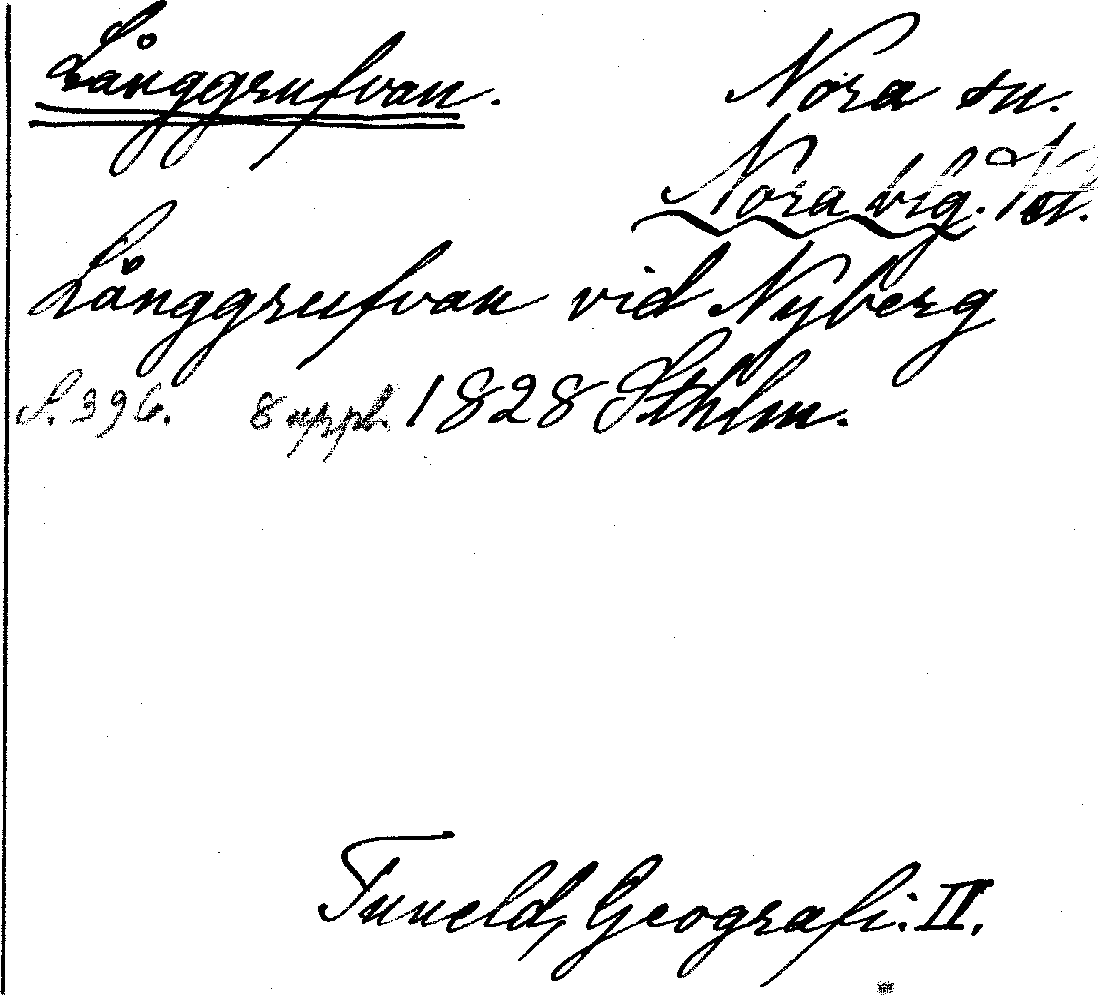 Långgrufvan. Nora sn.
Nora brg.
Långgrufvan vid Nyberg
S. 396. 8 uppl. 1828 Sthlm.
Tuneld, Geografi. II.